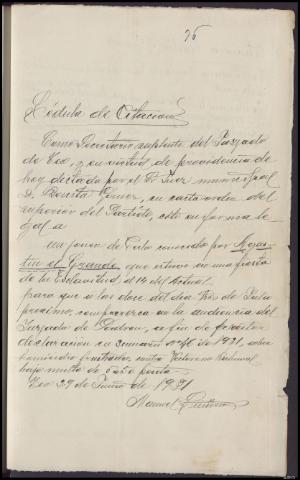 75
Cédula de Citacion
Como Secretario suplente del Juzgado
de Teo, y en virtud de providencia de
hoy dictada por el Sr. Juez municipal
D. Gomez, en carta-orden del
superior del Partido, cito en forma le
gal a
un joven de conocido por Agus-
tin el Grande, que estuvo en una fiesta
de la Esclavitud, el del actual,
para que a las doce del dia tres de Julio
proximo, comparezca en la audiencia del
Juzgado de Padron, a fin de prestar
declaracion en sumario nº 46 de 1931, sobre
homicidio frustrado, contra
bajo multa de 5 a 50 pesetas
Teo 29 de Junio de 1931
Manuel